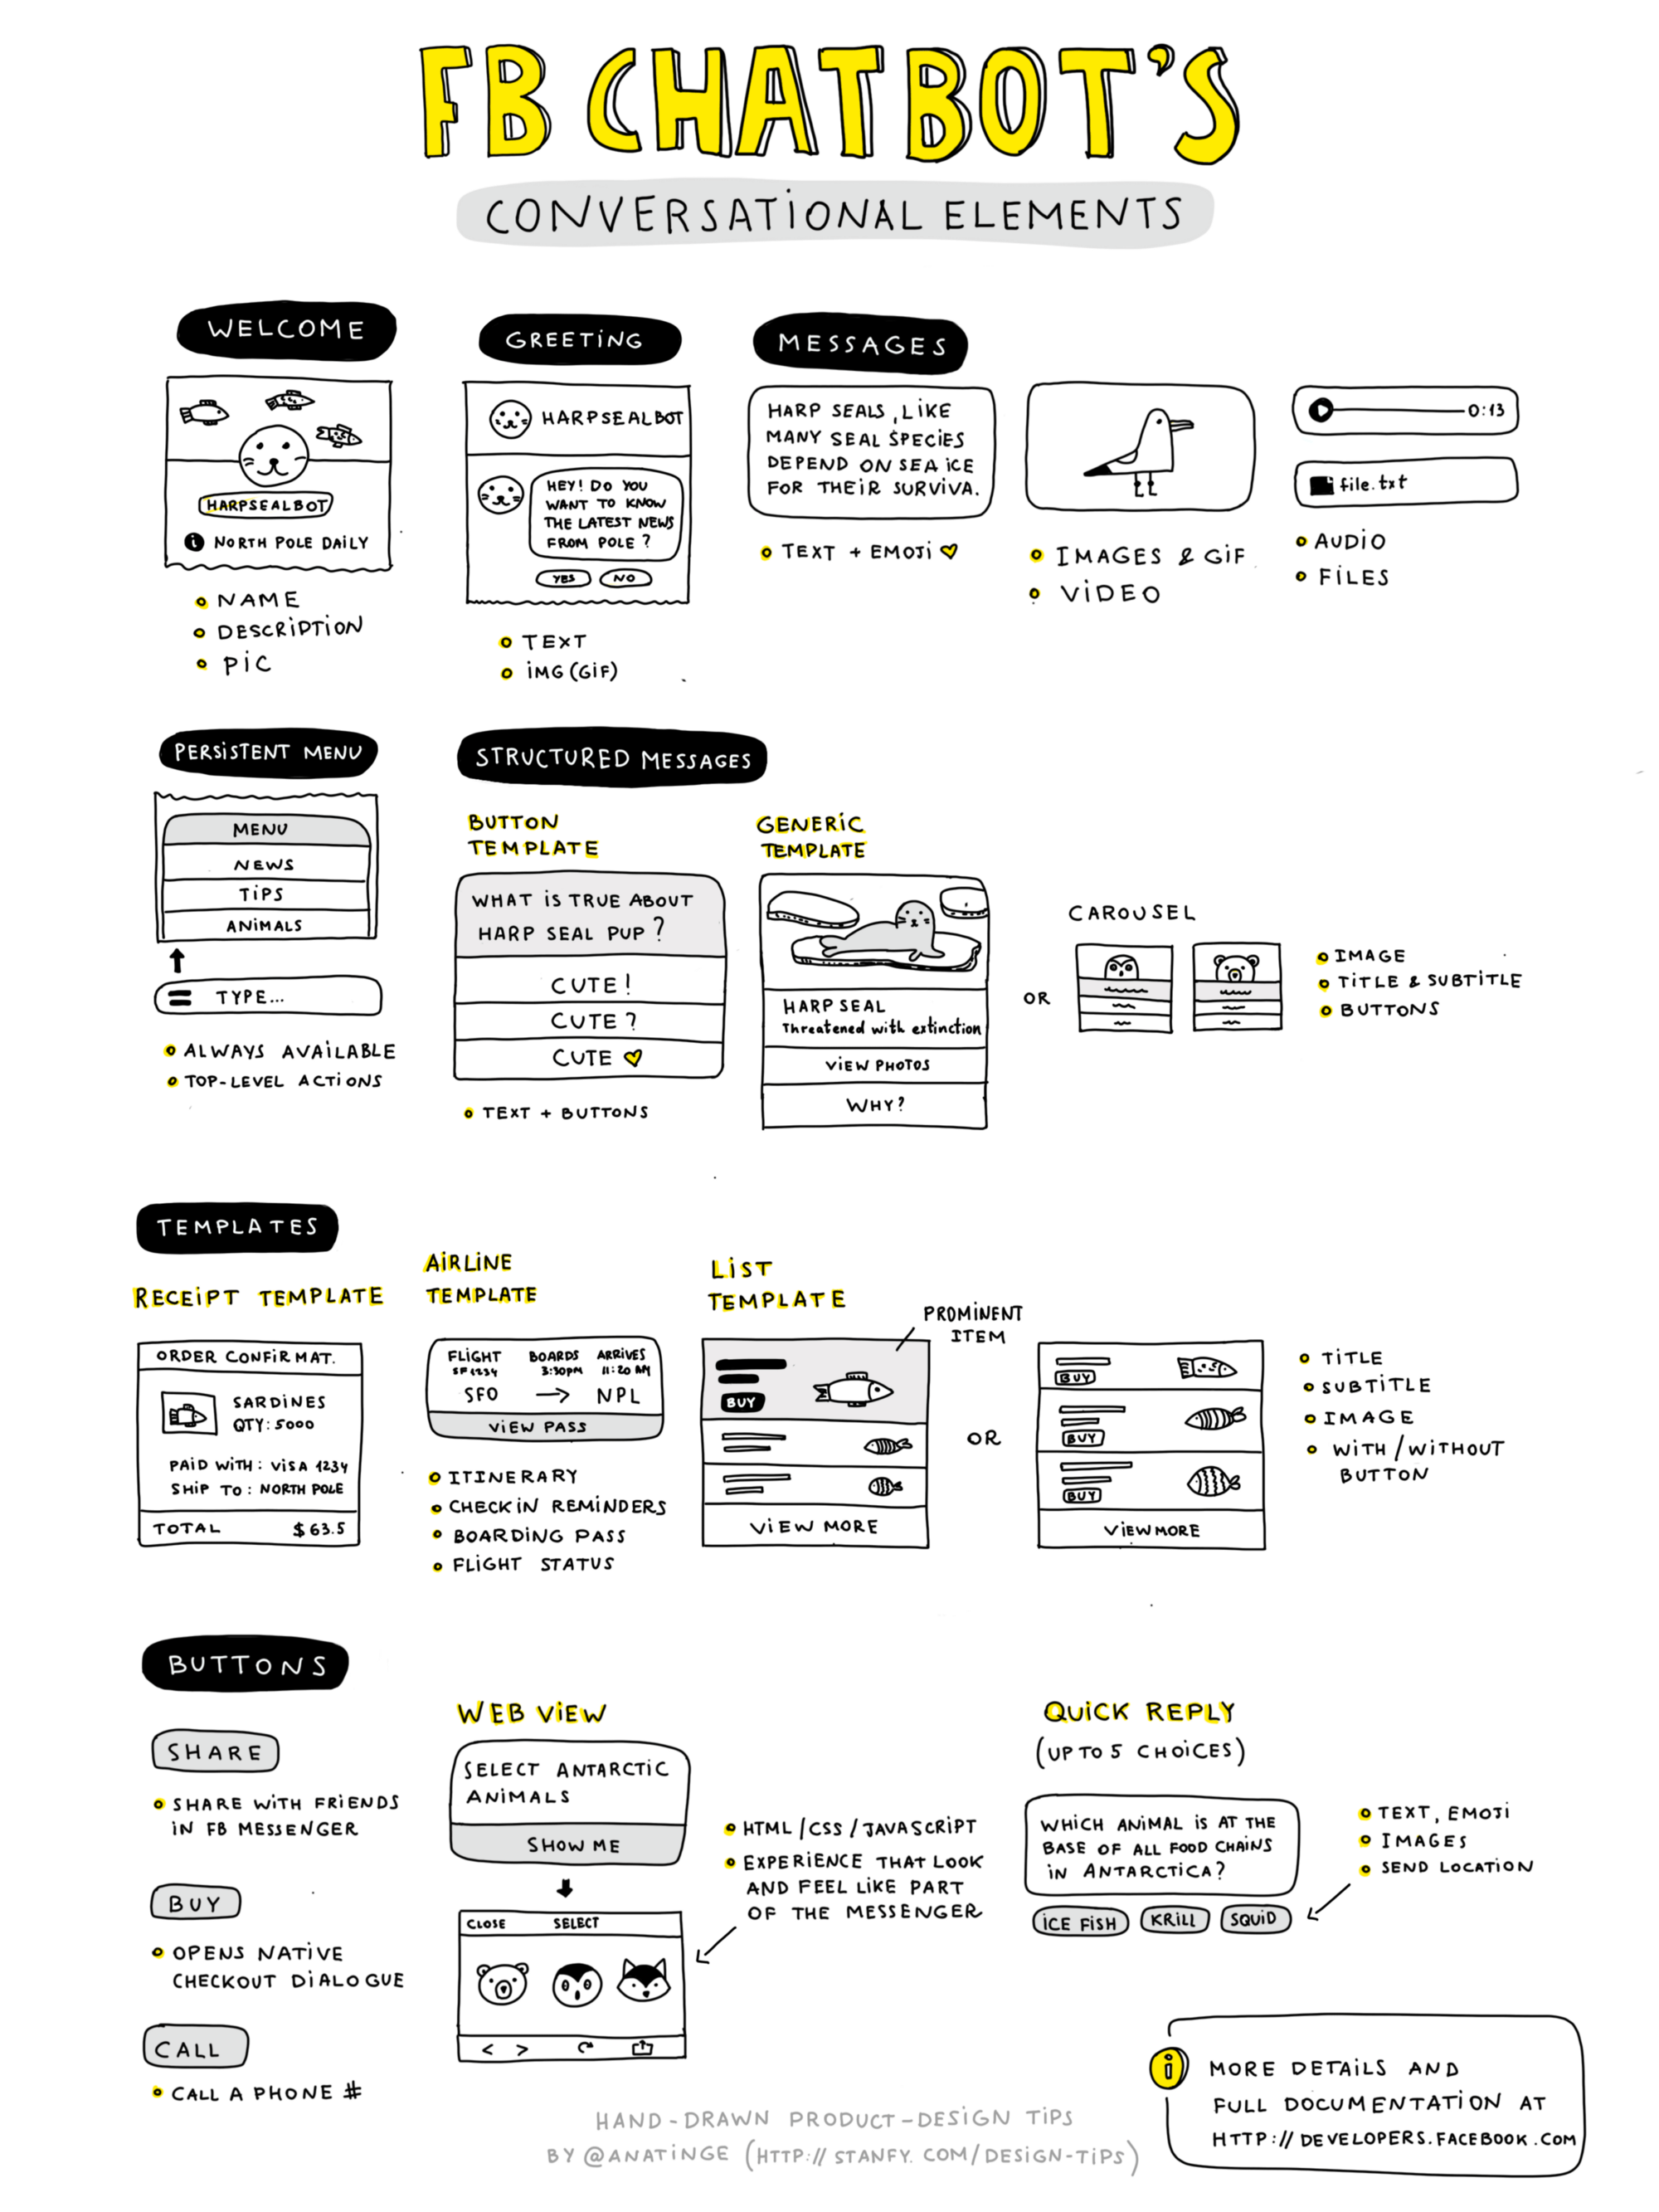 FB CHATBOT'S
CONVERSATIONAL ELEMENTS
WELCOME
HARPSEALBOT
i NORTH POLE DAILY
NAME
DESCRIPTION
PIC
GREETING
HARPSEALBOT
HEY! DO YOU
WANT TO KNOW
THE LATEST NEWS
FROM POLE ?
YES NO
TEXT
IMG (GIF)
MESSAGES
HARP SEALS, LIKE
MANY SEAL SPECIES
DEPEND ON SEA ICE
FOR THEIR SURVIVA.
TEXT + EMOJI
IMAGES & GIF
VIDEO
0:13
file.txt
AUDIO
FILES
PERSISTENT MENU
MENU
NEWS
TIPS
ANIMALS
TYPE...
ALWAYS AVAILABLE
TOP-LEVEL ACTIONS
STRUCTURED MESSAGES
BUTTON
TEMPLATE
WHAT IS TRUE ABOUT
HARP SEAL PUP ?
CUTE !
CUTE ?
CUTE
TEXT + BUTTONS
GENERIC
TEMPLATE
HARP SEAL
Threatened with extinction
VIEW PHOTOS
WHY?
OR
CAROUSEL
IMAGE
TITLE & SUBTITLE
BUTTONS
TEMPLATES
RECEIPT TEMPLATE
ORDER CONFIRMAT.
SARDINES
QTY: 5000
PAID WITH: VISA 1234
SHIP TO: NORTH POLE
TOTAL $63.5
AIRLINE
TEMPLATE
FLIGHT BOARDS ARRIVES
SF1234 3:30PM 11:20 AM
SFO → NPL
VIEW PASS
ITINERARY
CHECKIN REMINDERS
BOARDING PASS
FLIGHT STATUS
LIST
TEMPLATE
PROMINENT
ITEM
BUY
VIEW MORE
OR
BUY
BUY
BUY
VIEW MORE
TITLE
SUBTITLE
IMAGE
WITH / WITHOUT
BUTTON
BUTTONS
SHARE
SHARE WITH FRIENDS
IN FB MESSENGER
BUY
OPENS NATIVE
CHECKOUT DIALOGUE
CALL
CALL A PHONE #
WEB VIEW
SELECT ANTARCTIC
ANIMALS
SHOW ME
CLOSE SELECT
< >
HTML / CSS / JAVASCRIPT
EXPERIENCE THAT LOOK
AND FEEL LIKE PART
OF THE MESSENGER
QUICK REPLY
(UP TO 5 CHOICES)
WHICH ANIMAL IS AT THE
BASE OF ALL FOOD CHAINS
IN ANTARCTICA?
ICE FISH KRILL SQUID
TEXT, EMOJI
IMAGES
SEND LOCATION
i MORE DETAILS AND
FULL DOCUMENTATION AT
HTTP://DEVELOPERS.FACEBOOK.COM
HAND-DRAWN PRODUCT-DESIGN TIPS
BY @ANATINGE (HTTP://STANFY.COM/DESIGN-TIPS)